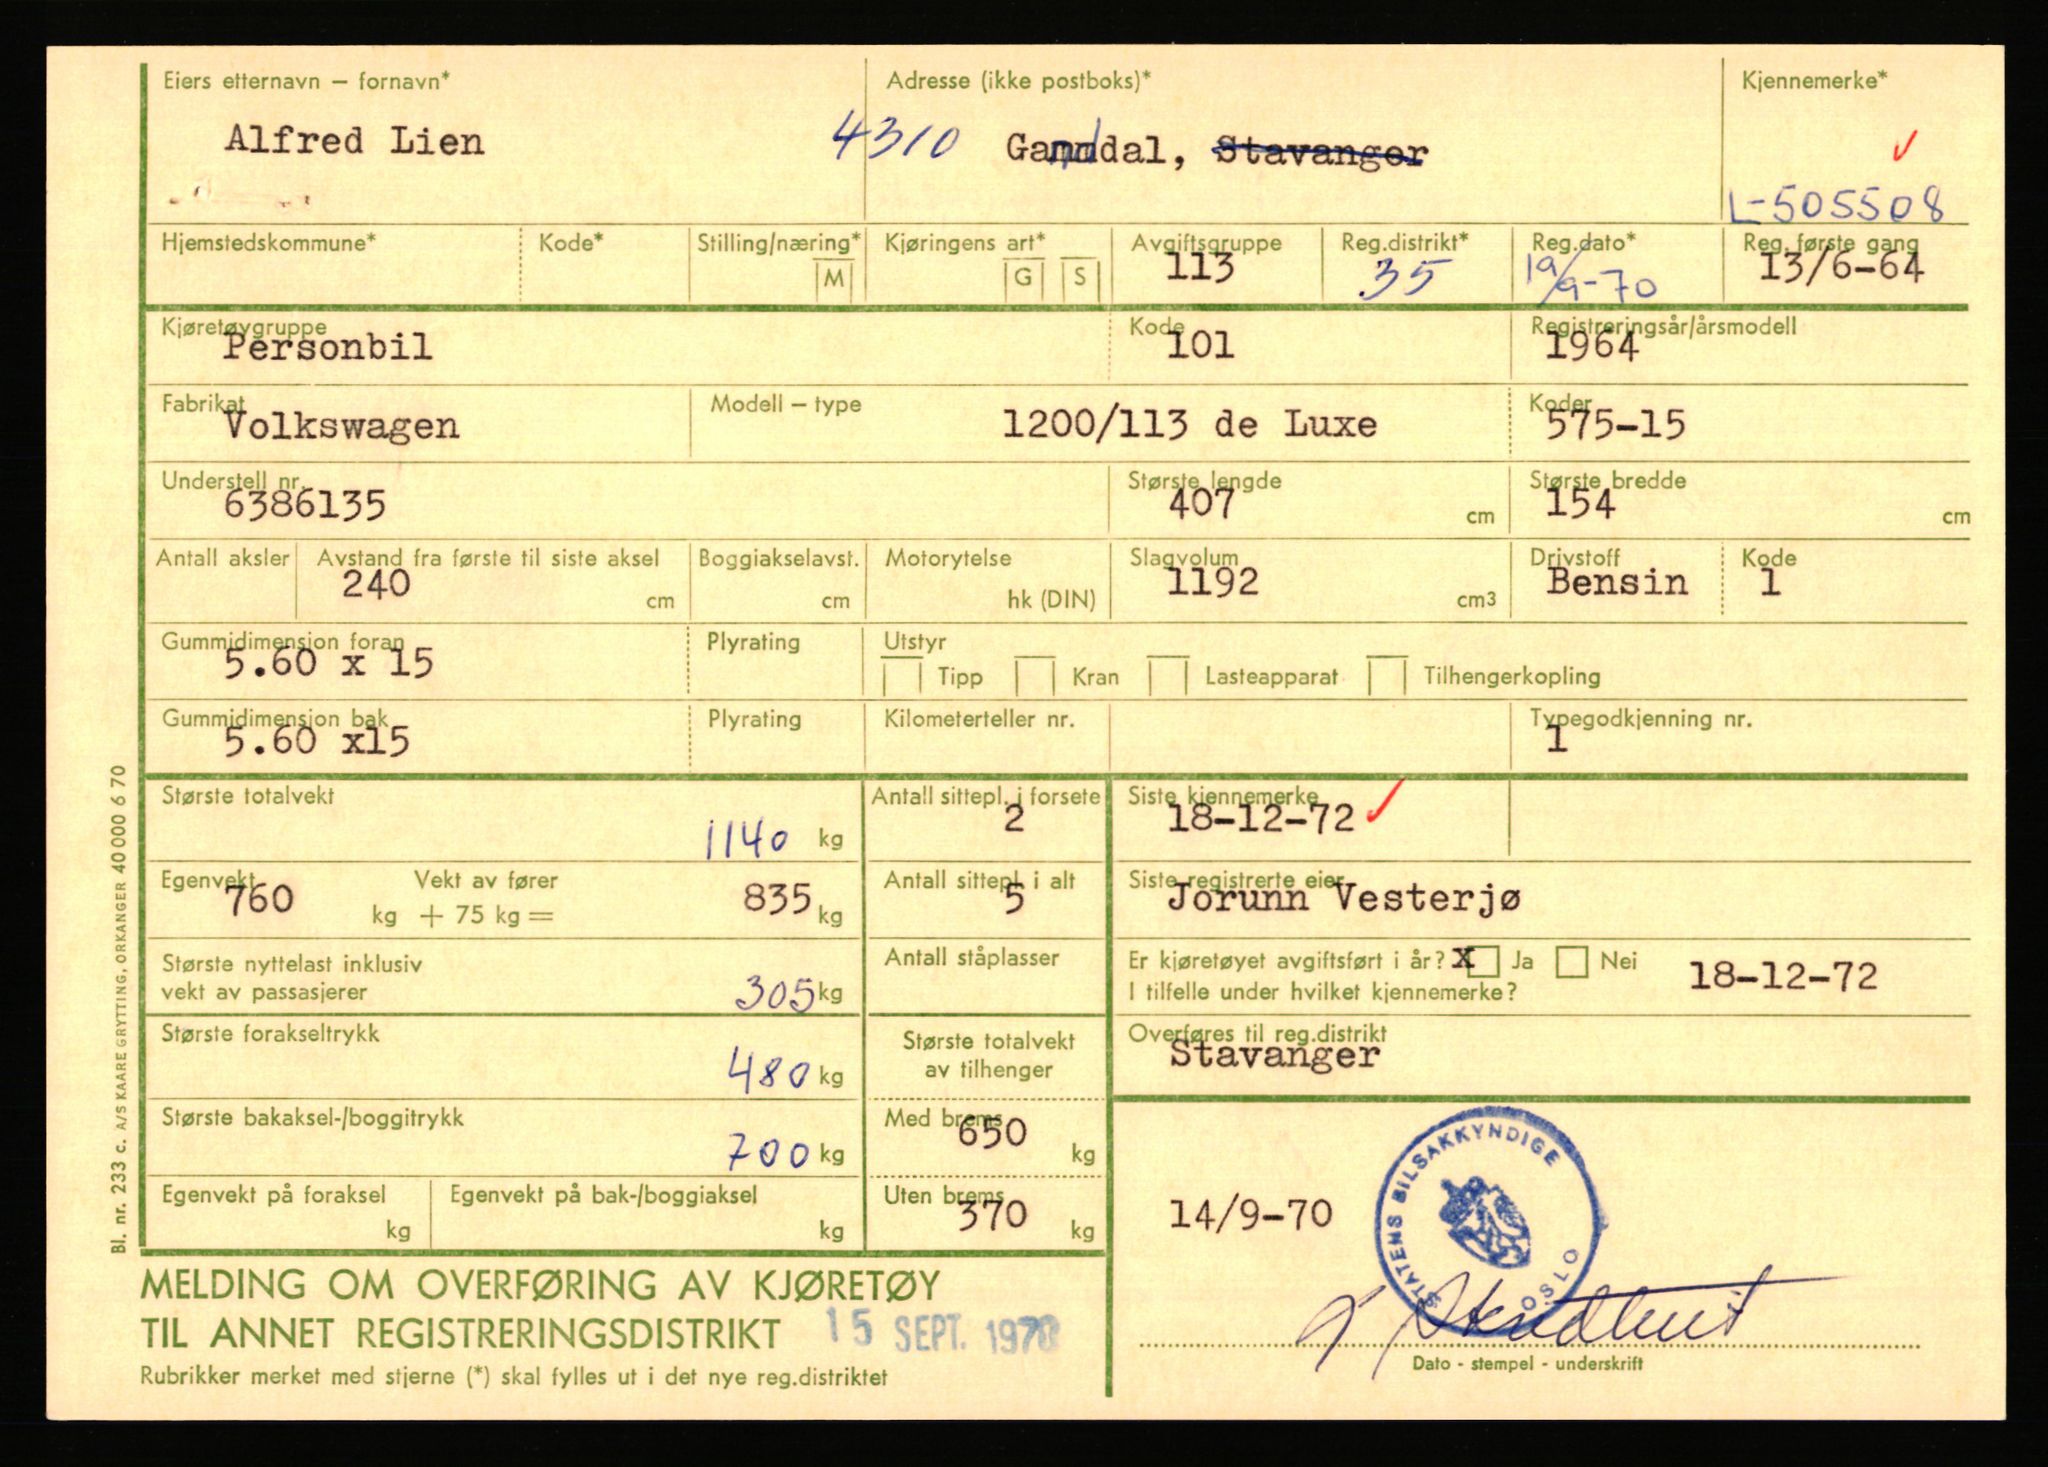 Eiers etternavn – fornavn* Adresse (ikke postboks)* Kjennemerke*
Alfred Lien 4310 Ganndal, Stavanger
L-505508
Hjemstedskommune* Kode* Stilling/næring* Kjøringens art* Avgiftsgruppe Reg.distrikt* Reg.dato* Reg. første gang
M G S 113 35 19/9-70 13/6-64
Kjøretøygruppe Kode Registreringsår/årsmodell
Personbil 101 1964
Fabrikat Modell – type Koder
Volkswagen 1200/113 de Luxe 575-15
Understell nr. Største lengde Største bredde
6386135 407 cm 154 cm
Antall aksler Avstand fra første til siste aksel Boggiakselavst. Motorytelse Slagvolum Drivstoff Kode
240 cm cm hk (DIN) 1192 cm3 Bensin 1
Gummidimensjon foran Plyrating Utstyr
5.60 x 15 Tipp Kran Lasteapparat Tilhengerkopling
Gummidimensjon bak Plyrating Kilometerteller nr. Typegodkjenning nr.
5.60 x15 1
Største totalvekt Antall sittepl. i forsete Siste kjennemerke
1140 kg 2 18-12-72
Egenvekt Vekt av fører Antall sittepl. i alt Siste registrerte eier
760 kg + 75 kg = 835 kg 5 Jorunn Vesterjø
Største nyttelast inklusiv Antall ståplasser Er kjøretøyet avgiftsført i år? x Ja Nei
vekt av passasjerer 305 kg I tilfelle under hvilket kjennemerke? 18-12-72
Største forakseltrykk Største totalvekt Overføres til reg.distrikt
480 kg av tilhenger Stavanger
Største bakaksel-/boggitrykk Med brems
700 kg 650 kg
Egenvekt på foraksel Egenvekt på bak-/boggiaksel Uten brems
kg kg 370 kg 14/9-70
STATENS BILSAKKYNDIGE OSLO
MELDING OM OVERFØRING AV KJØRETØY
TIL ANNET REGISTRERINGSDISTRIKT 15 SEPT. 1970
Rubrikker merket med stjerne (*) skal fylles ut i det nye reg.distriktet
Dato - stempel - underskrift
Bl. nr. 233 c. A/S KAARE GRYTTING, ORKANGER 40 000 6 70